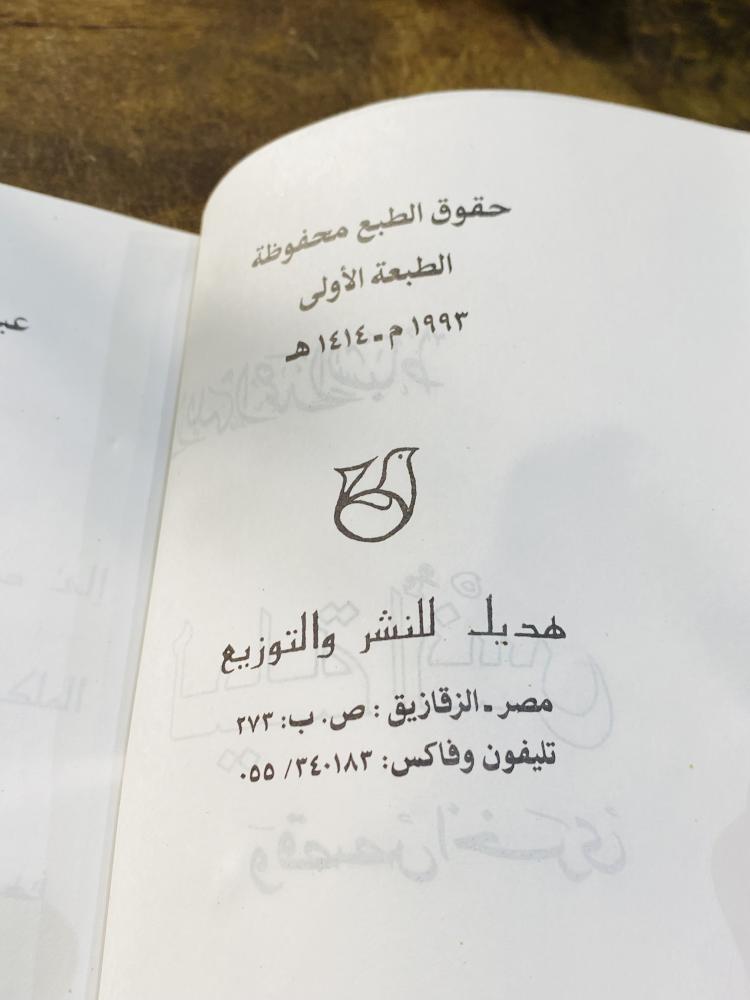 حقوق الطبع محفوظة
الطبعة الأولى
١٩٩٣ م - ١٤١٤ هـ
هديل للنشر والتوزيع
مصر - الزقازيق : ص. ب: ٢٧٣
تليفون وفاكس: ٣٤٠١٨٣/ ٠٥٥
وقصص أخرى